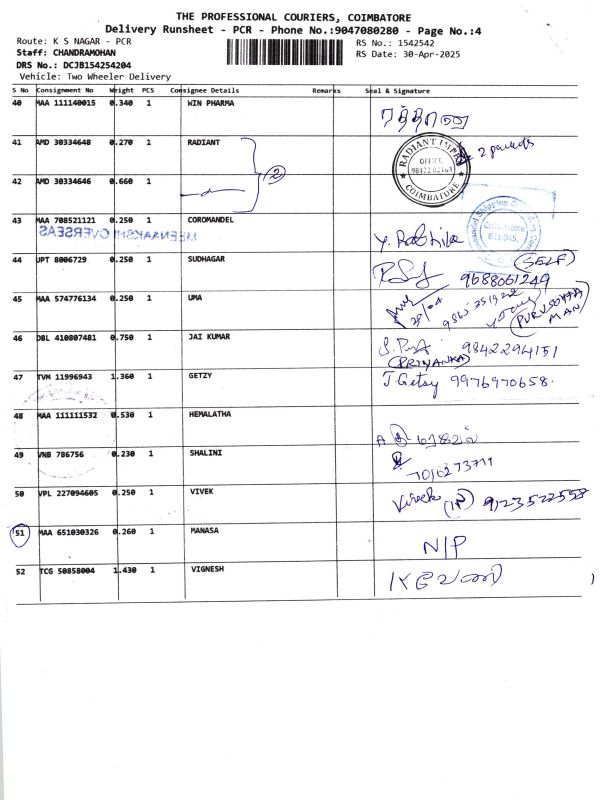 THE PROFESSIONAL COURIERS, COIMBATORE
Delivery Runsheet - PCR - Phone No.:9047080280 - Page No.:4
Route: K S NAGAR - PCR RS No.: 1542542
Staff: CHANDRAMOHAN RS Date: 30-Apr-2025
DRS No.: DCJB154254204
Vehicle: Two Wheeler Delivery
S No Consignment No Weight PCS Consignee Details Remarks Seal & Signature
40 MAA 111140015 0.340 1 WIN PHARMA
41 AMD 30334648 0.270 1 RADIANT 2 packets
RADIANT IMPEX OFFICE COIMBATORE
42 AMD 30334646 0.660 1 2
43 MAA 708521121 0.250 1 COROMANDEL Y. Radhika
MEENAAKSHI OVERSEAS
Coimbatore 641 045
44 UPT 8006729 0.250 1 SUDHAGAR (SELF) 9688061249
45 MAA 574776134 0.250 1 UMA 29/04 (PURUSOTHAMAN)
46 DBL 410807481 0.750 1 JAI KUMAR 9842294151
(PRIYANKA)
47 TVM 11996943 1.360 1 GETZY J. Getsy 9976970658.
48 MAA 111111532 0.530 1 HEMALATHA
49 VNB 786756 0.230 1 SHALINI
50 VPL 227094605 0.250 1 VIVEK Vivek 9123522558
51 MAA 651030326 0.260 1 MANASA N/P
52 TCG 50858004 1.430 1 VIGNESH